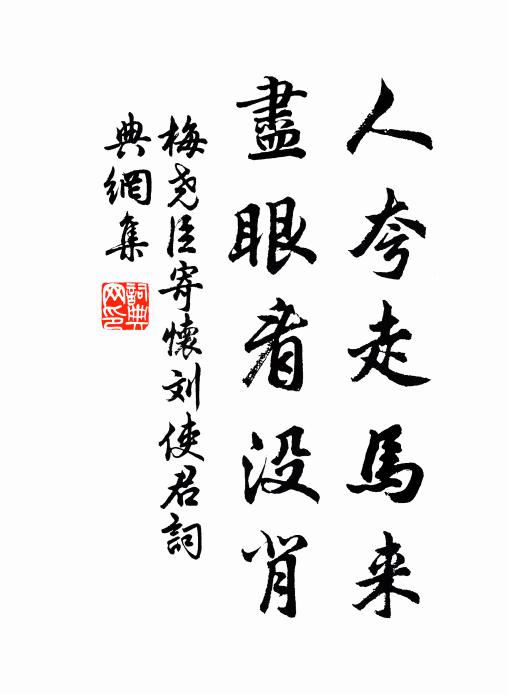 人夸走馬来
盡眼看没背
梅尧臣寄懷刘使君詞
典網集
詞典
网印